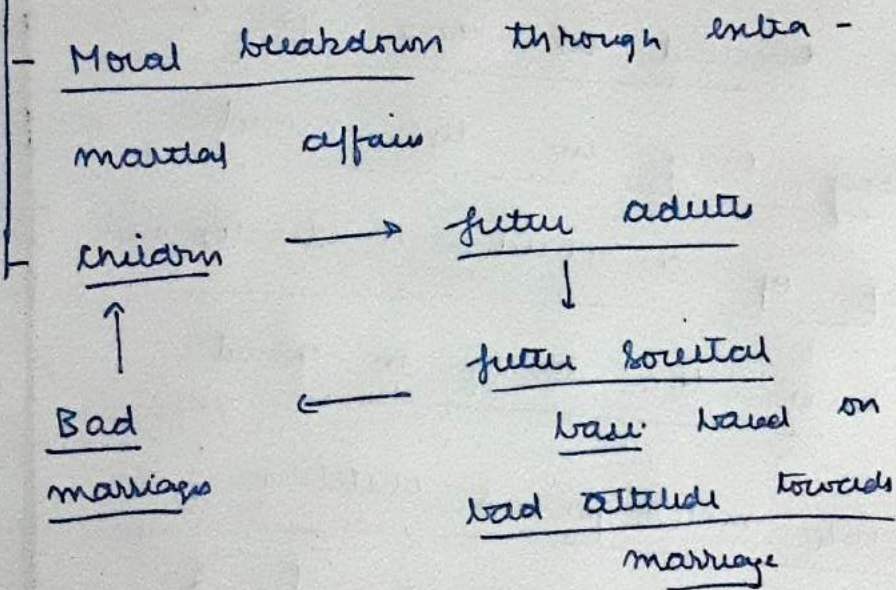 - Moral breakdown through extra -
marital affairs
- children → future adults
↓
↑ future societal
← base based on
Bad
marriages bad attitude towards
marriage